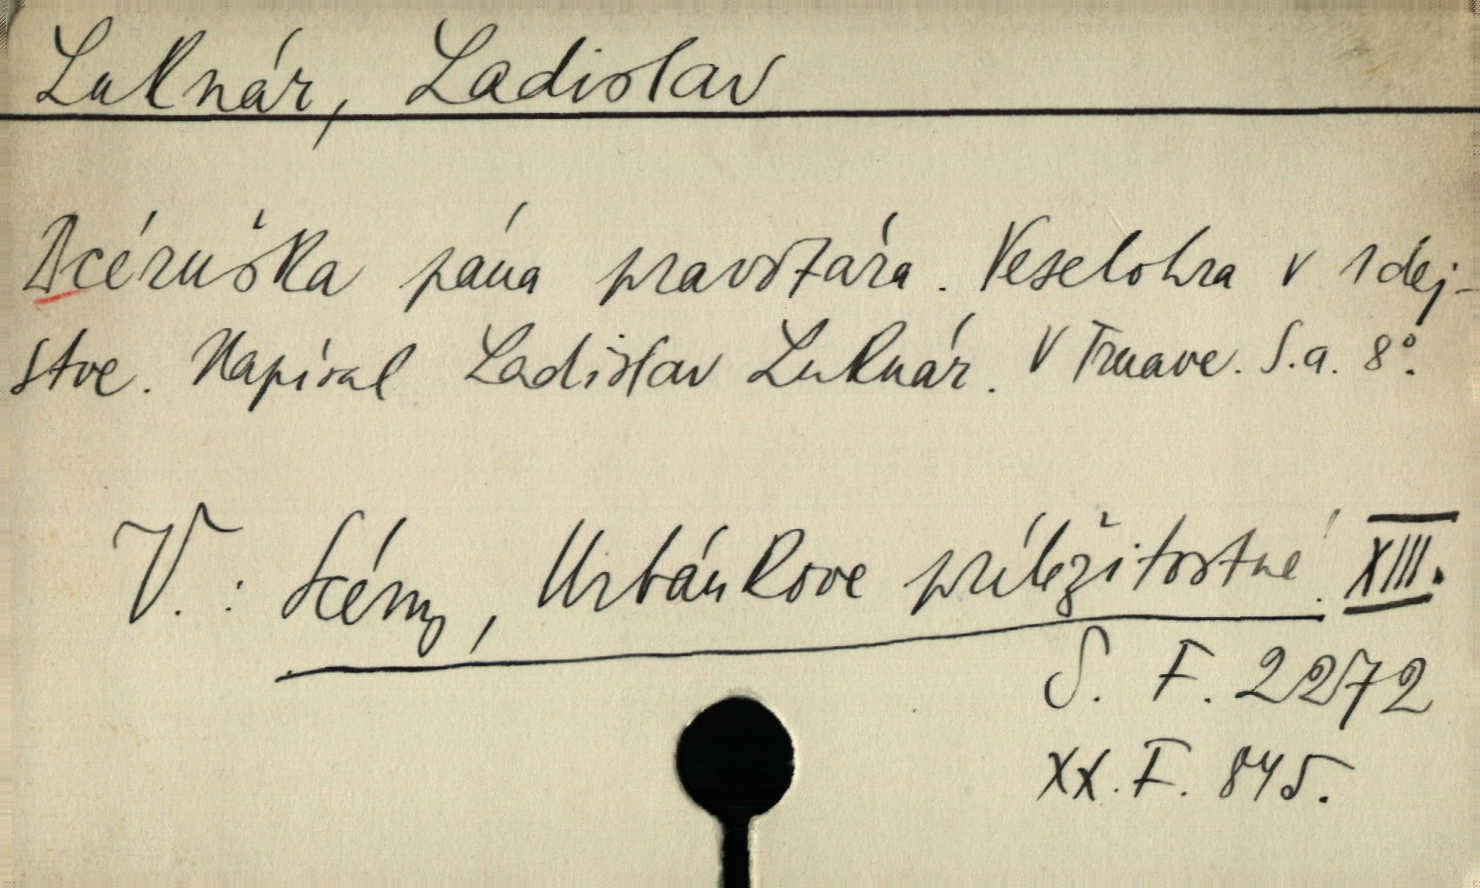 Luknár, Ladislav
Dcéruška pána pravotára. Veselohra v 1 dej-
stve. Napísal Ladislav Luknár. V Trnave. S.a. 8°.
V.: Scény, Urbánkove príležitostné. XIII.
S. F. 2272
XX. F. 845.